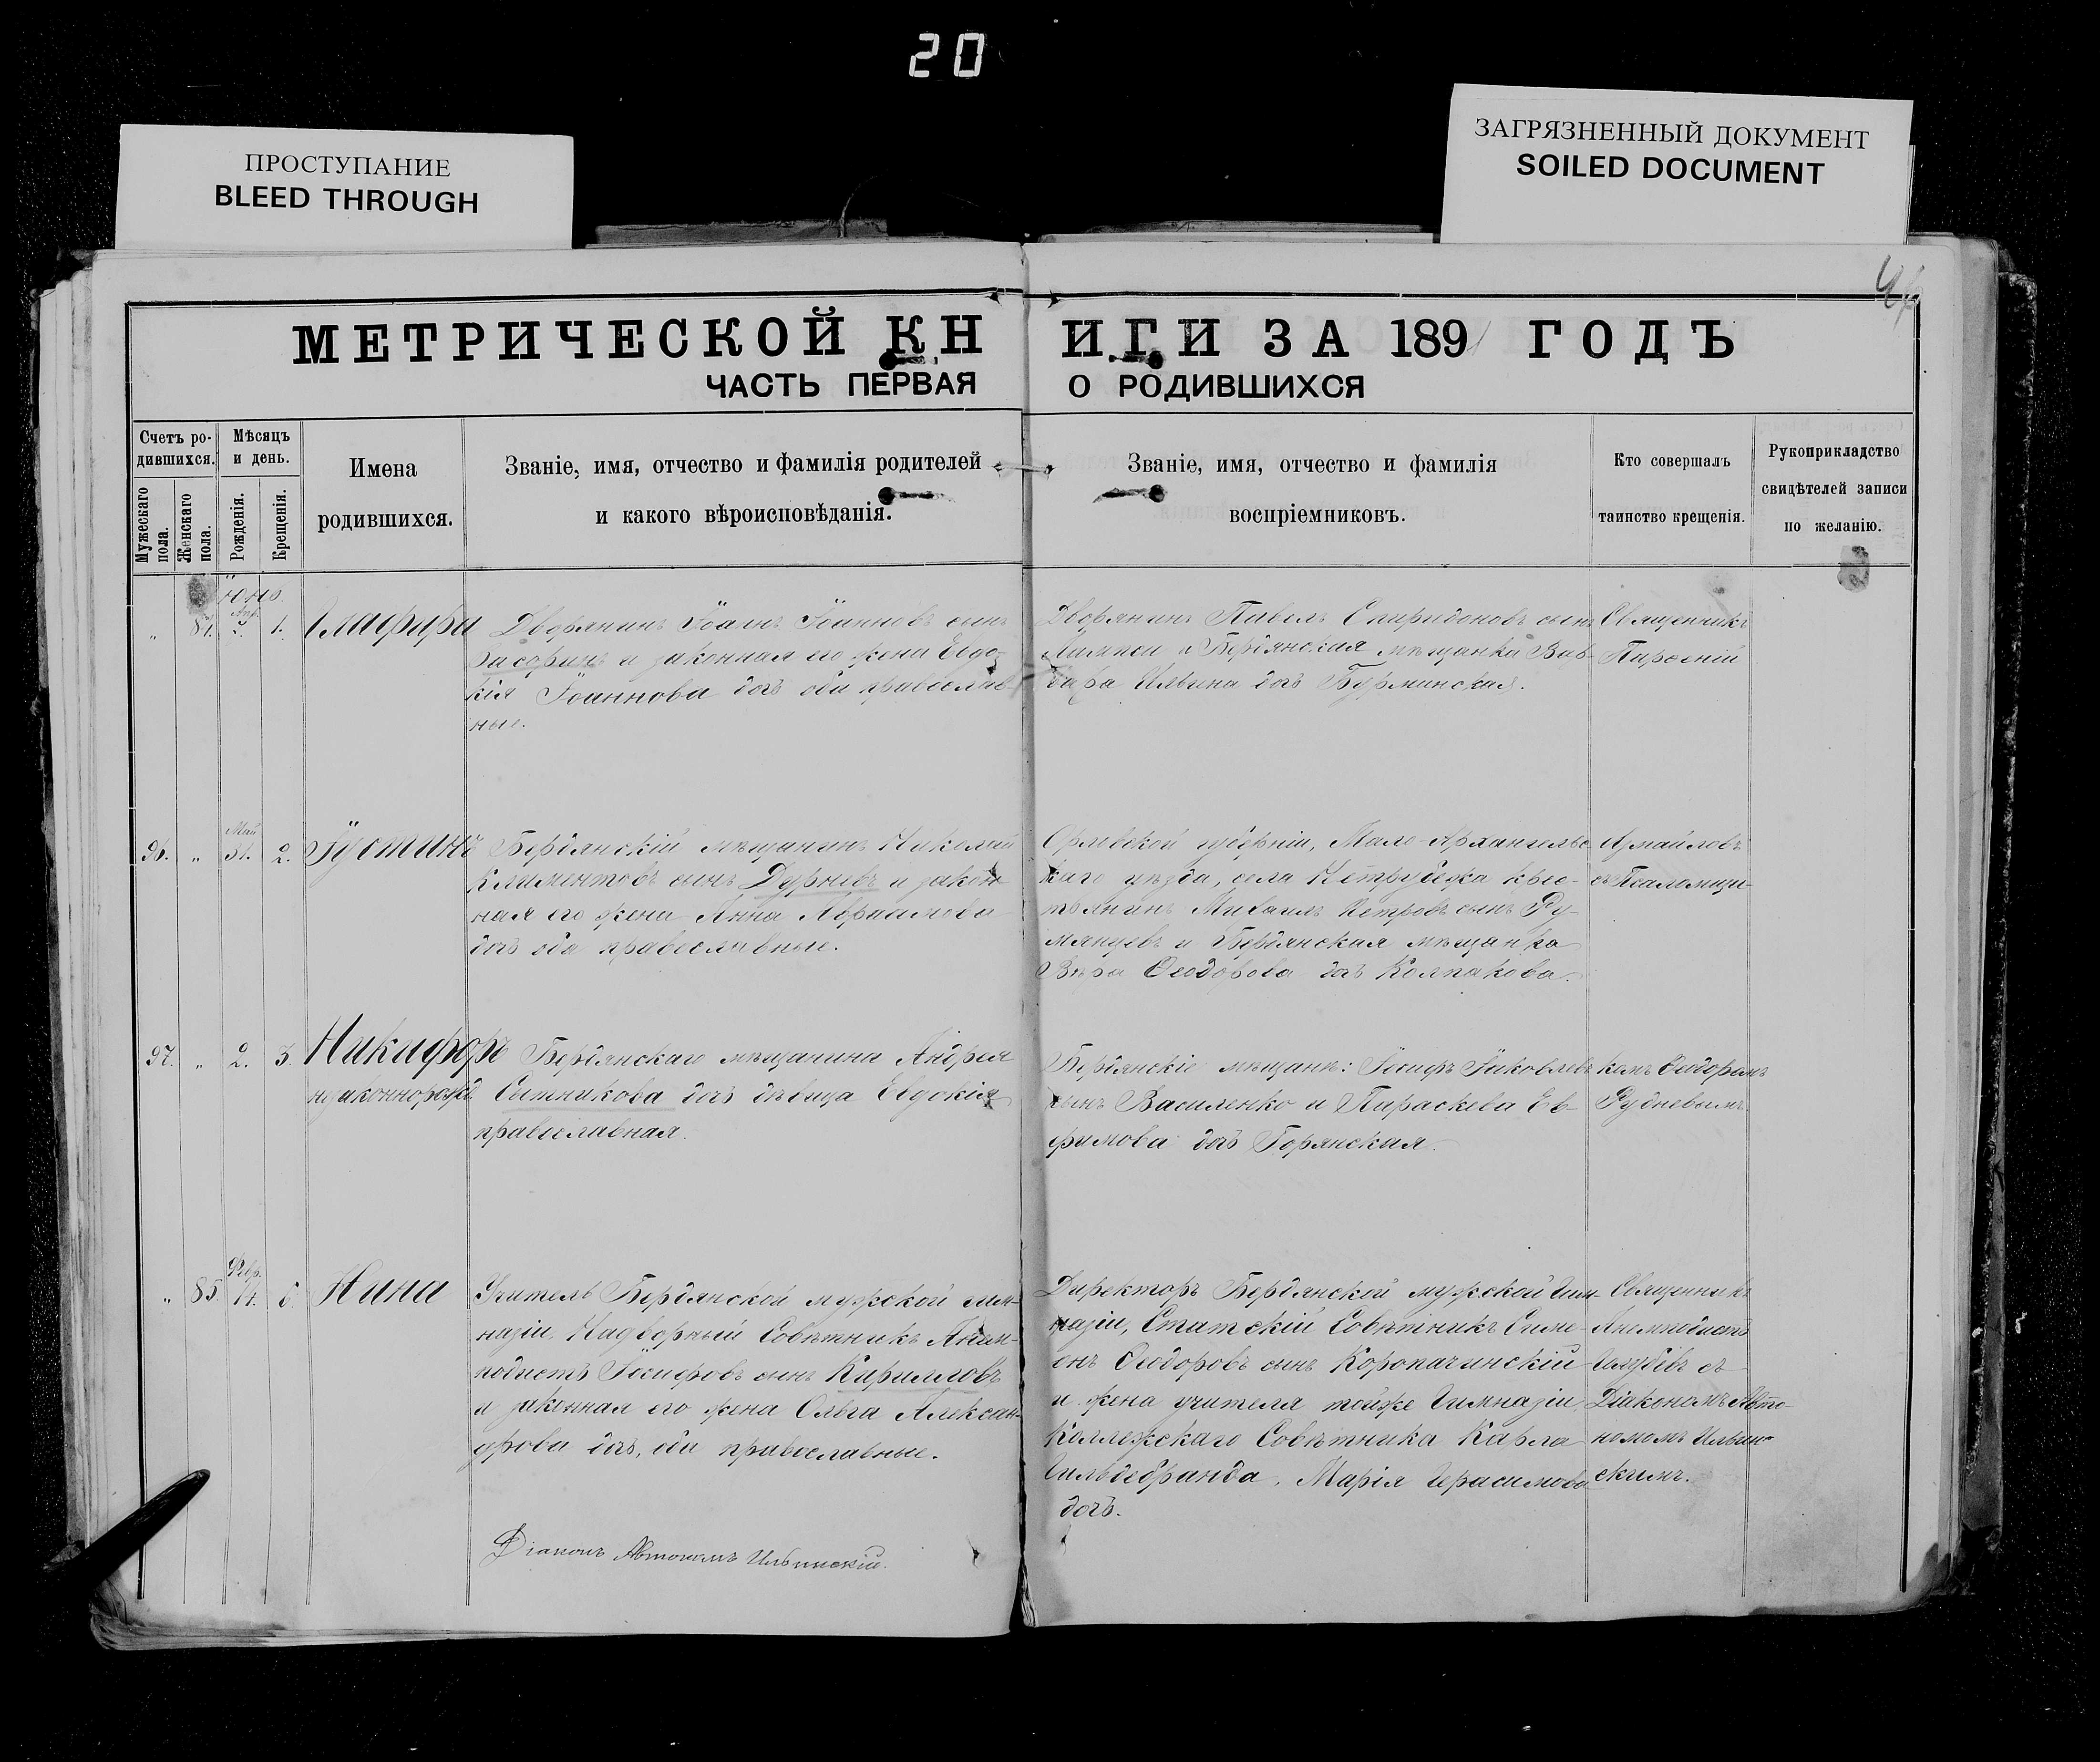 20
ПРОСТУПАНИЕ
BLEED THROUGH
ЗАГРЯЗНЕННЫЙ ДОКУМЕНТ
SOILED DOCUMENT
МЕТРИЧЕСКОЙ КН
ЧАСТЬ ПЕРВАЯ
Счетъ ро-
дившихся.
Мужескаго пола.
Женскаго пола.
Мѣсяцъ
и день.
Рожденія.
Крещенія.
Имена
родившихся.
Званіе, имя, отчество и фамилія родителей
и какого вѣроисповѣданія.
ИГИ ЗА 1891 ГОДЪ
О РОДИВШИХСЯ
Званіе, имя, отчество и фамилія
воспріемниковъ.
Кто совершалъ
таинство крещенія.
Рукоприкладство
свидѣтелей записи
по желанію.
1. Глафира
Дворянинъ Іоаннъ Іоанновъ сынъ
и законная его жена Евдо-
кія Іоаннова дочь оба православ-
ные.
Дворянинъ Павелъ Спиридоновъ сынъ
и Бердянская мѣщанка Вар-
вара Ильина дочь Бурминская.
Священникъ
Парѳеній
96. " Май 31. 2. Іустинъ
Бердянскій мѣщанинъ Николай
Климентовъ сынъ Дурневъ и закон-
ная его жена Анна Авраамова
дочь оба православные.
Орловской губерніи, Мало-Архангельс-
каго уѣзда, села крес-
тьянинъ Михаилъ Петровъ сынъ Ру-
мянцевъ и Бердянская мѣщанка
Вѣра Ѳеодорова дочь Колпакова.
съ Псаломщи-
97. " 2. 3. Никифоръ
незаконнорожд.
Бердянскаго мѣщанина Андрея
Сытникова дочь дѣвица Евдокія
православная.
Бердянскіе мѣщане: Іосифъ Іаковлевъ
сынъ Василенко и Параскева Ев-
фимова дочь Горянская.
комъ Ѳеодоромъ
Рудневымъ.
" 85. Февр. 14. Нина
Учитель Бердянской мужской гим-
назіи, Надворный Совѣтникъ Анем-
подистъ Іосифовъ сынъ Кирилловъ
и законная его жена Ольга Алексан-
дрова дочь, оба православные.
Директоръ Бердянской мужской Гим-
назіи, Статскій Совѣтникъ Симе-
онъ Ѳеодоровъ сынъ Коропачинскій
и жена учителя тойже Гимназіи
Коллежскаго Совѣтника Карла
Гильдебранда, Марія Герасимова
дочь.
Священникъ
Анемподистъ
съ
Діакономъ Авто-
номомъ Ильин-
скимъ.
Діаконъ Автономъ Ильинскій.